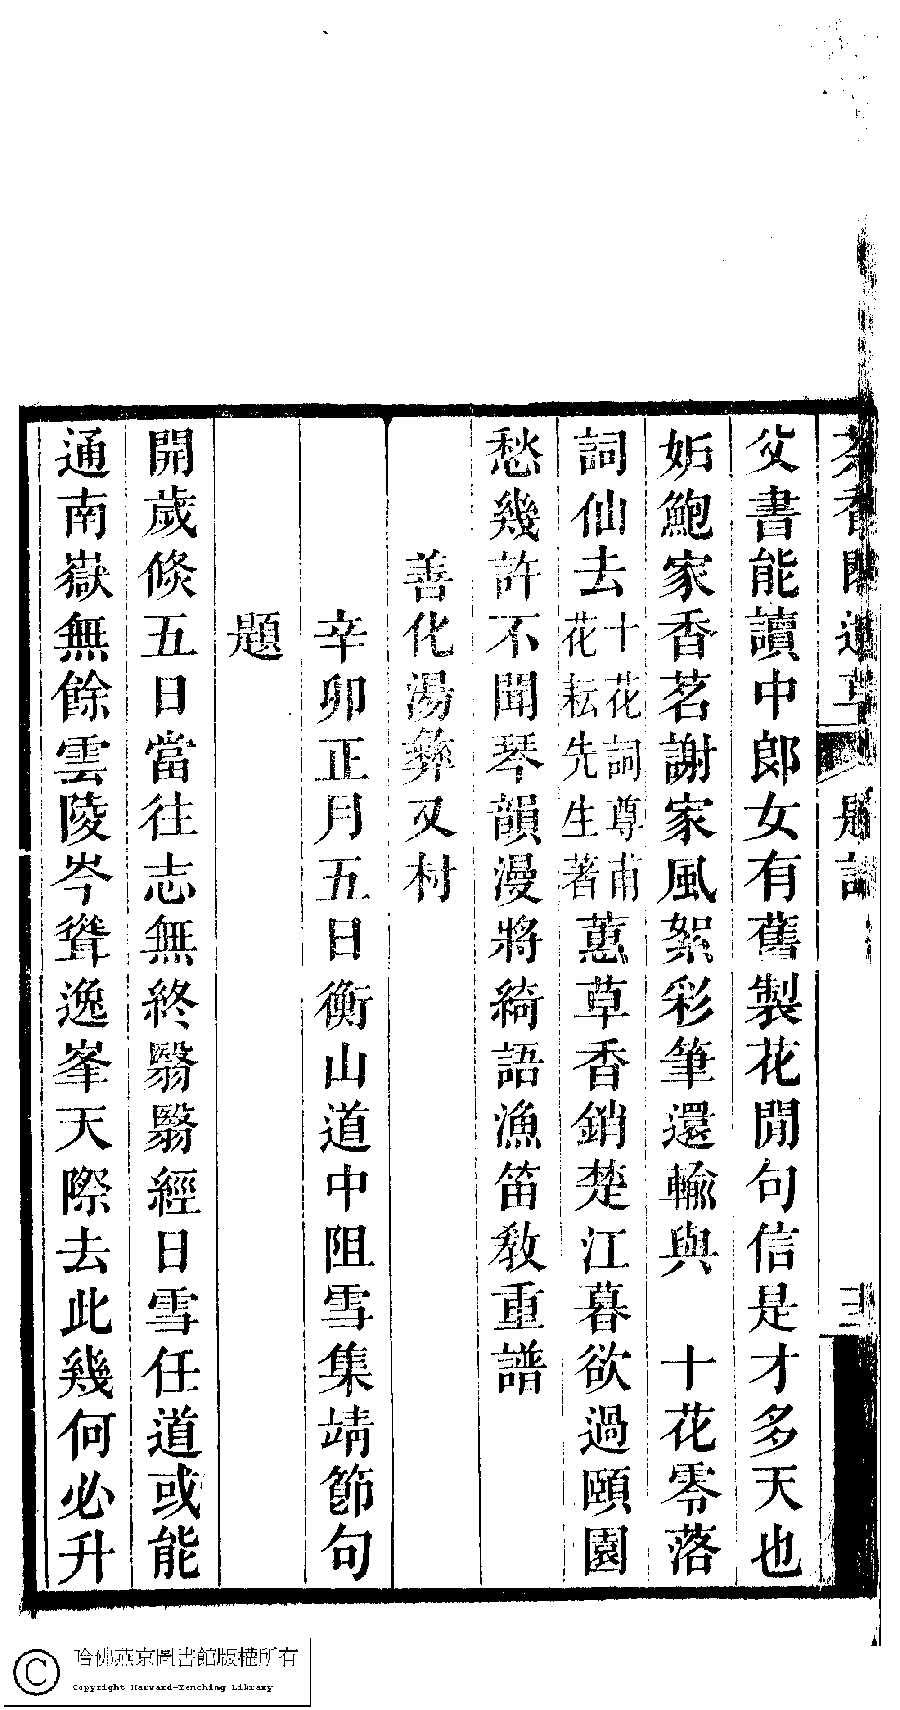 父書能讀中郎女有舊製花閒句信是才多天也
妬鮑家香茗謝家風絮彩筆還輸與　十花零落
詞仙去十花詞尊甫花耘先生著蕙草香銷楚江暮欲過頤園
愁幾許不聞琴韻漫將綺語漁笛教重譜
善化湯彝又村
辛卯正月五日衡山道中阻雪集靖節句
題
開歲倐五日當往志無終翳翳經日雪任道或能
通南嶽無餘雲陵岑聳逸峯天際去此幾何必升
哈佛燕京圖書館版權所有
Copyright Harvard-Yenching Library